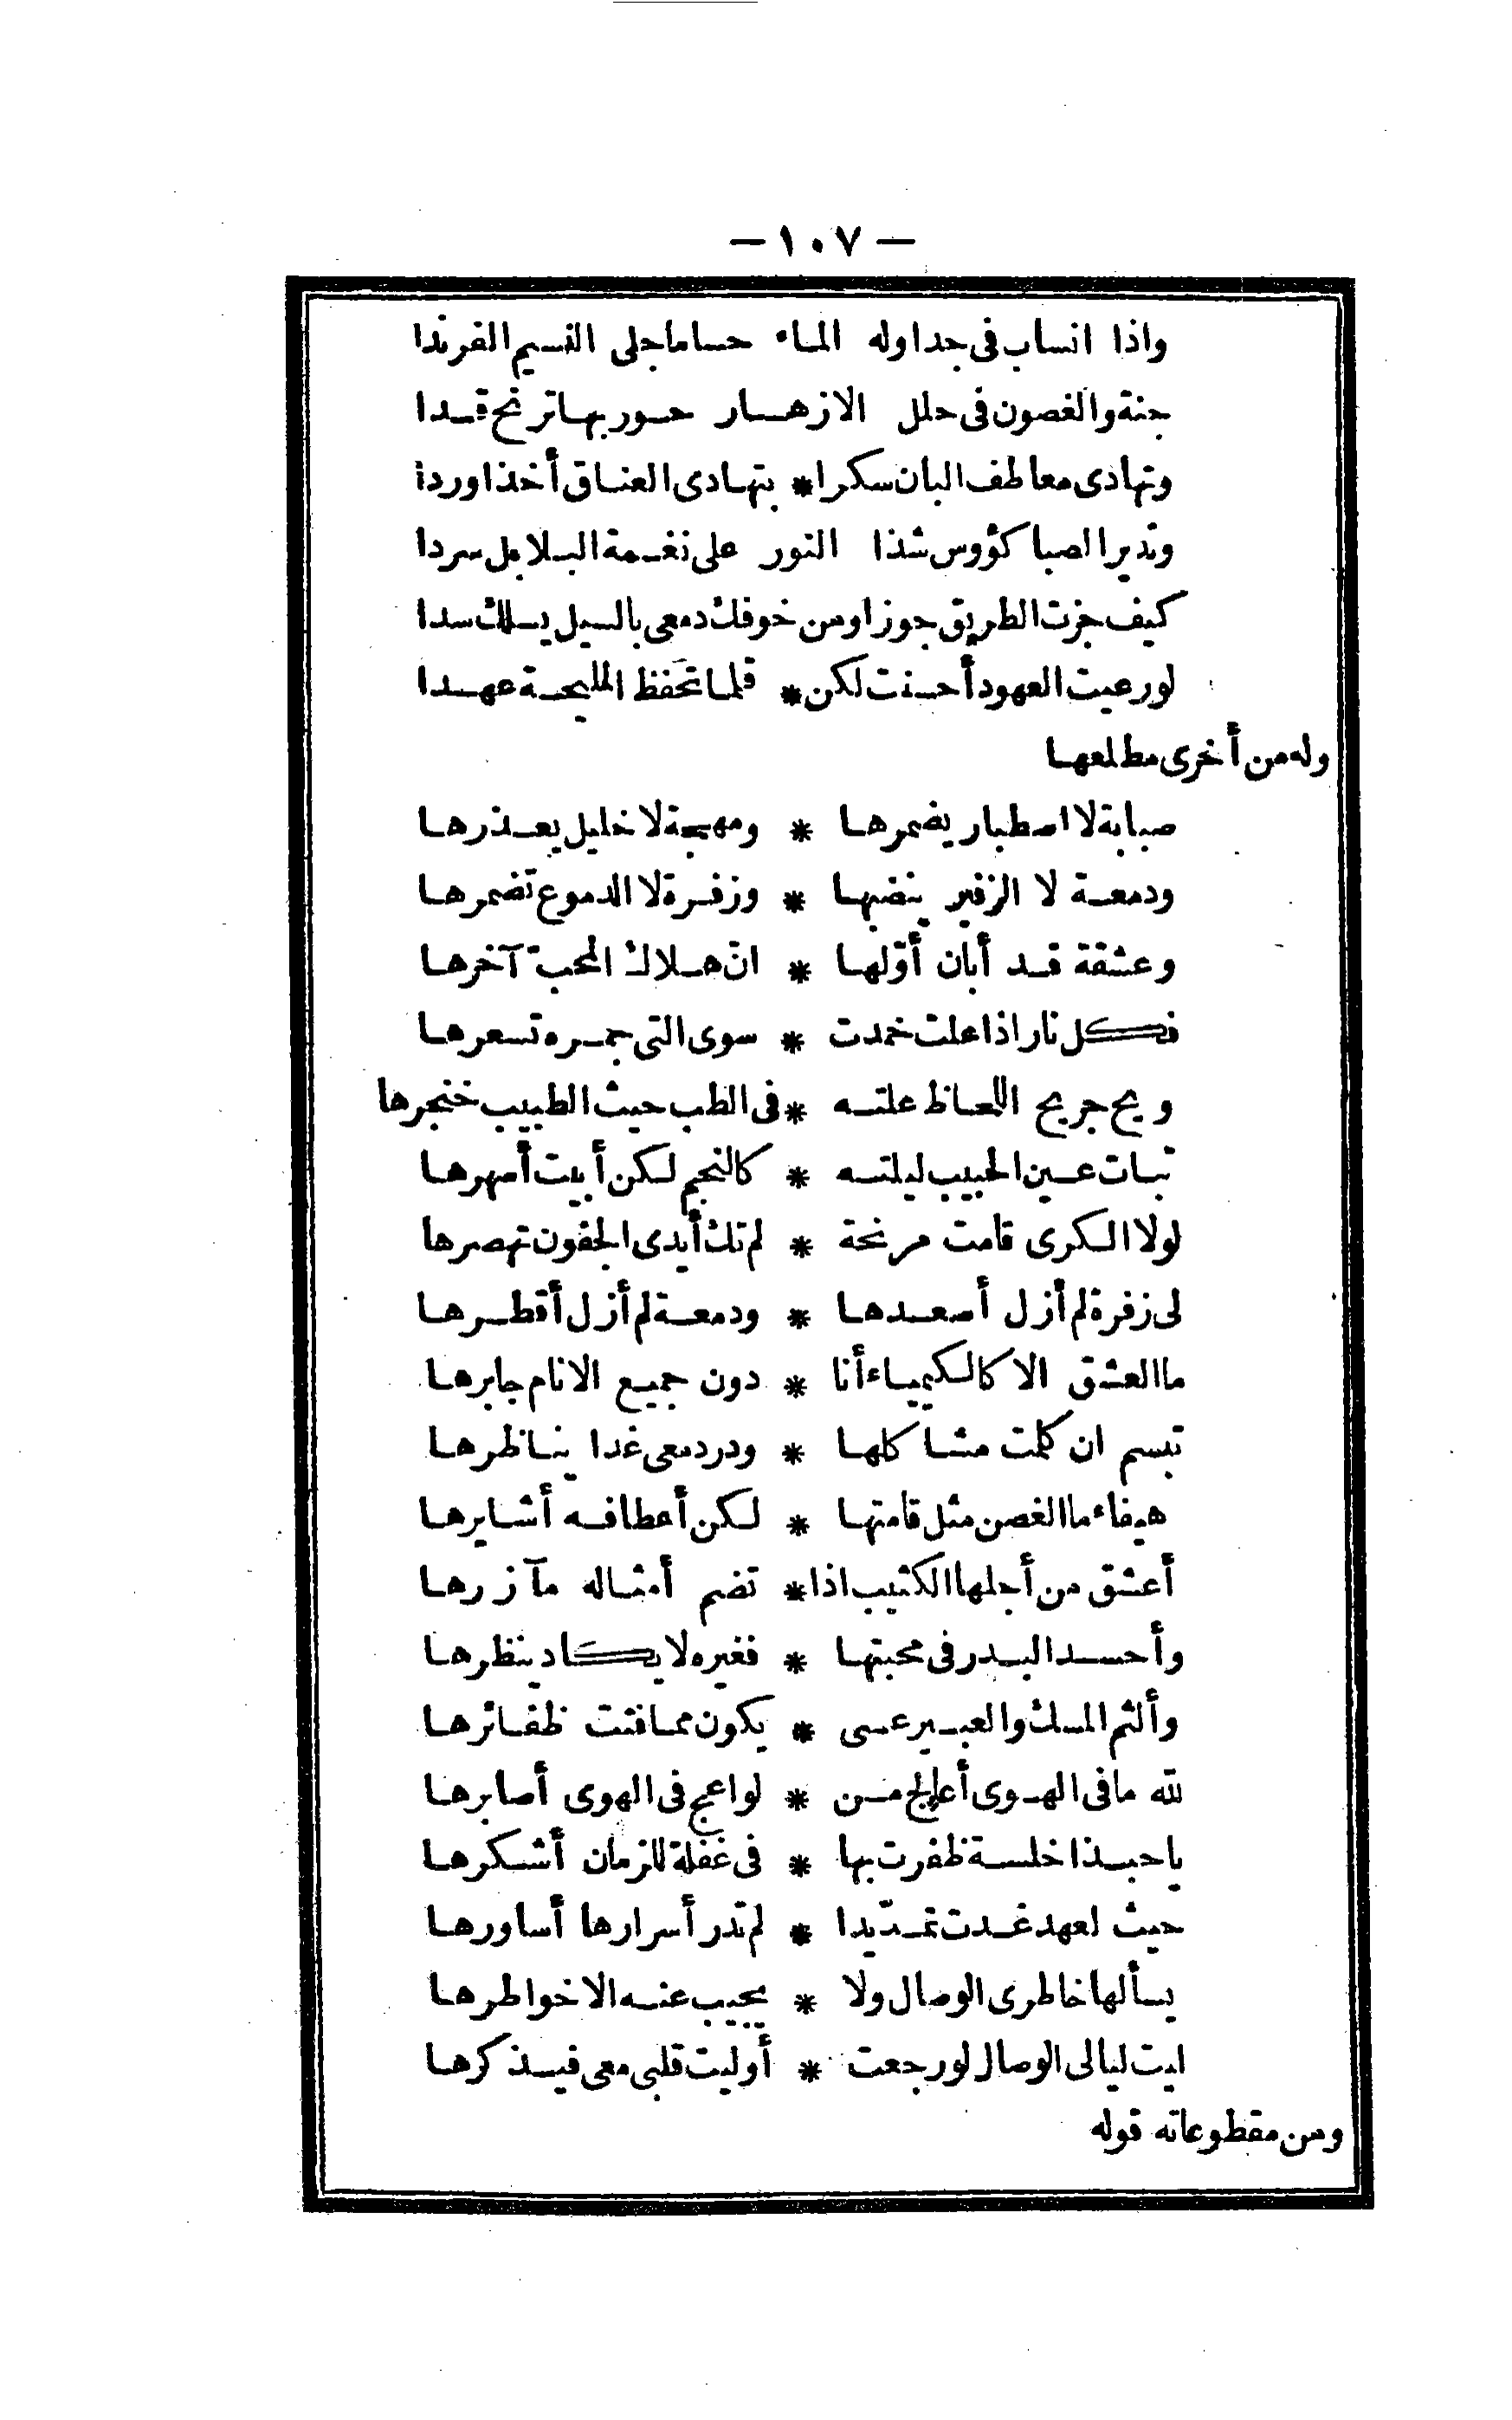 — ١٠٧ —
واذا انساب فى جداوله الماء حساما جلى النسيم الفرندا
جنة والغصون فى حلل الازهار حور بها ترنح قدا
وتهادى معاطف البان سكرا * بتهادى العناق أخذا وردا
وتدير الصبا كؤوس شذا النور على نغمة البلابل سردا
كيف جزت الطريق جوزا ومن خوفك دمعى بالسيل يسلك سدا
لو رعيت العهود أحسنت لكن * قلما تحفظ المليحة عهدا
وله من أخرى مطلعها
صبابة لا اصطبار يضمرها * ومهجة لا خليل يعذرها
ودمعة لا الزفير ينضبها * وزفرة لا الدموع تضمرها
وعشقة قد أبان أوّلها * انّ هلاك المحبّ آخرها
فكل نار اذا علت خمدت * سوى التى جمره تسعرها
ويح جريح اللحاظ علته * فى الطب حيث الطبيب خنجرها
تبات عين الحبيب ليلته * كالنجم لكن أبيت أسهرها
لولا الكرى قامت مرنحة * لم تك أيدى الجفون تهصرها
لى زفرة لم أزل أصعدها * ودمعة لم أزل أقطرها
ما العشق الا كالكيمياء أنا * دون جميع الانام جابرها
تبسم ان كلمت مشاكلها * ودر دمعى غدا يناظرها
هيفاء ما الغصن مثل قامتها * لكن أعطافه أشايرها
أعشق من أجلها الكثيب اذا * تضم أمثاله مآزرها
وأحسد البدر فى محبتها * فغيره لا يكاد ينظرها
وألثم المسك والعبير عسى * يكون مما فتت ظفائرها
لله ما فى الهوى أعالج من * لواعج فى الهوى أصابرها
يا حبذا خلسة ظفرت بها * فى غفلة للزمان أشكرها
حيث لعهد غدت تمدّ يدا * لم تدر أسرارها أساورها
يسألها خاطرى الوصال ولا * يجيب عنه الا خواطرها
ليت ليالى الوصال لو رجعت * أو ليت قلبى معى فيذكرها
ومن مقطوعاته قوله